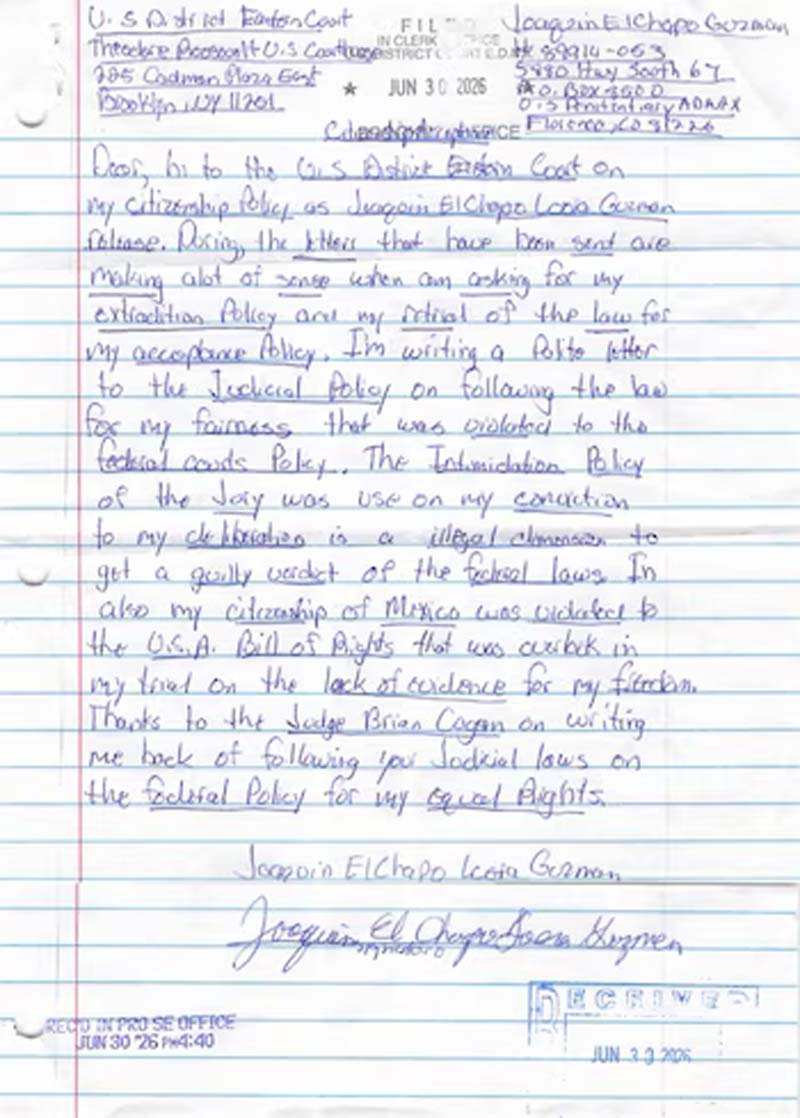 U.S District Eastern Court
Theodore Roosevelt U.S Courthouse
225 Cadman Plaza East
Brooklyn, NY 11201
FILED
IN CLERK OFFICE
DISTRICT COURT E.D.
★ JUN 30 2026 ★
OFFICE
Joaquin ElChapo Guzman
# 89914-053
5880 Hwy South 67
P.O. Box 8500
U.S Penitentiary ADMAX
Florence, CO 81226
Dear, hi to the U.S District Eastern Court on
my citizenship Policy as Joaquin ElChapo Loera Guzman
release. During, the letters that have been sent are
making alot of sense when am asking for my
extradition Policy and my retrial of the law for
my acceptance Policy. I'm writing a Polite letter
to the Judicial Policy on following the law
for my fairness that was violated to the
federal courts Policy. The Intimidation Policy
of the Jury was use on my conviction
to my deliberation is a illegal dimension to
get a guilty verdict of the federal laws. In
also my citizenship of Mexico was violated to
the U.S.A. Bill of Rights that was overlook in
my trial on the lack of evidence for my freedom.
Thanks to the Judge Brian Cogan on writing
me back of following your Judicial laws on
the federal Policy for my equal Rights.
Joaquin ElChapo Loera Guzman
Joaquin El Chapo Loera Guzman
signature
REC'D IN PRO SE OFFICE
JUN 30 '26 PM4:40
RECEIVED
JUN 30 2026